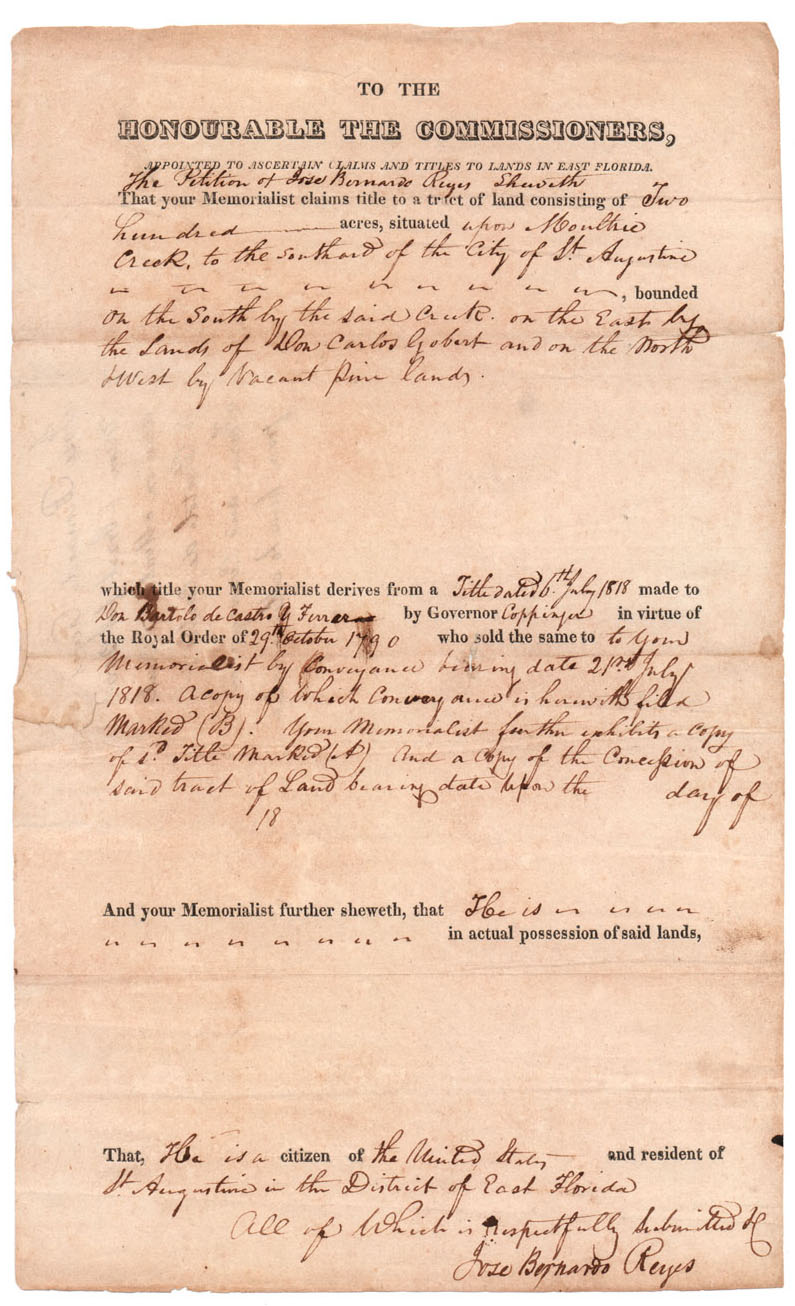 TO THE
HONOURABLE THE COMMISSIONERS,
APPOINTED TO ASCERTAIN CLAIMS AND TITLES TO LANDS IN EAST FLORIDA.
The Petition of Jose Bernardo Reyes Sheweth
That your Memorialist claims title to a tract of land consisting of Two
hundred acres, situated upon Moultrie
Creek, to the Southard of the City of St Augustine
, bounded
on the South by the said Creek. on the East by
the Lands of Don Carlos Gobert and on the North
& West by Vacant pine lands.
which title your Memorialist derives from a Title dated 6th July 1818 made to
Don Bartolo de Castro y Ferrer by Governor Coppinger in virtue of
the Royal Order of 29th October 1790 who sold the same to to your
Memorialist by Conveyance bearing date 21st July
1818. A copy of Which Conveyance is herewith filed
Marked (B). Your Memorialist further exhibits a Copy
of sd Title Marked (A) And a Copy of the Concession of
said tract of Land bearing date upon the day of
18
And your Memorialist further sheweth, that He is
in actual possession of said lands,
That, He is a citizen of the United States and resident of
St Augustine in the District of East Florida
All of Which is respectfully Submitted &c
Jose Bernardo Reyes